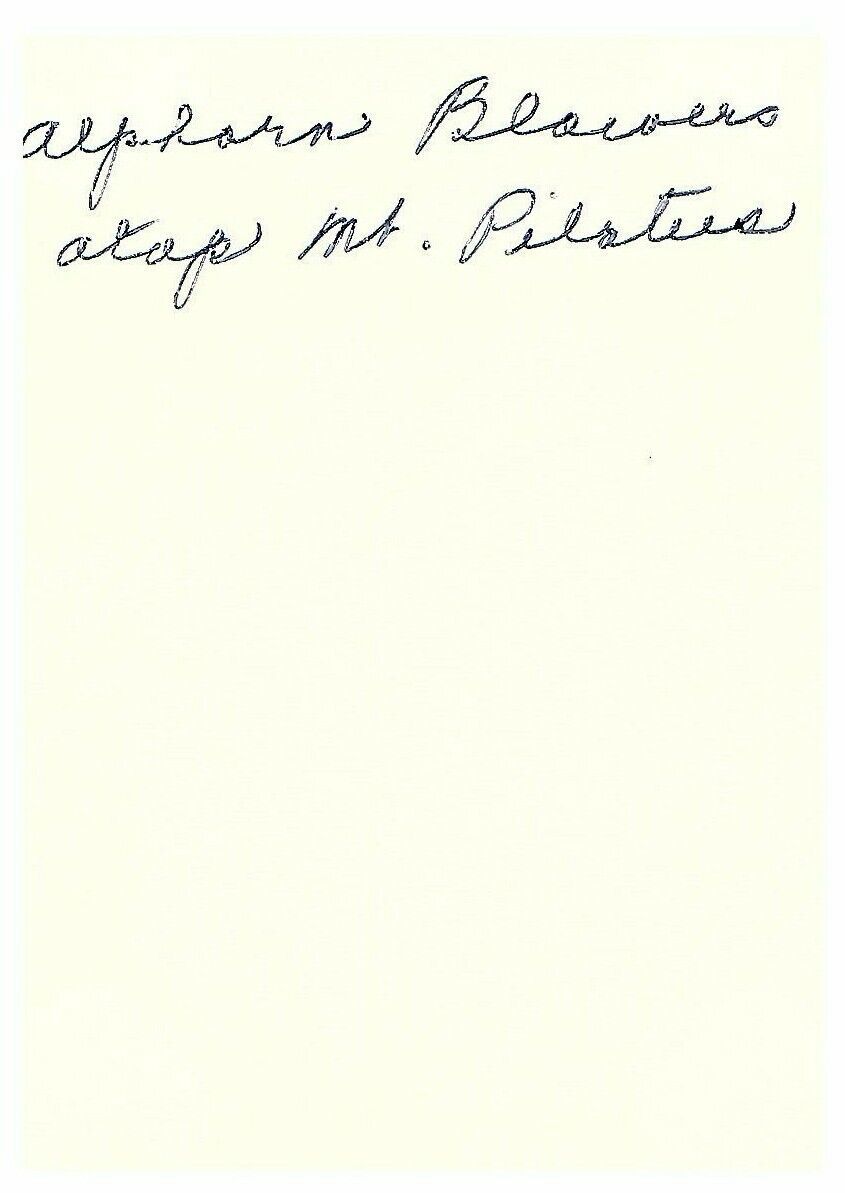 Alphorn Blowers
atop Mt. Pilatus